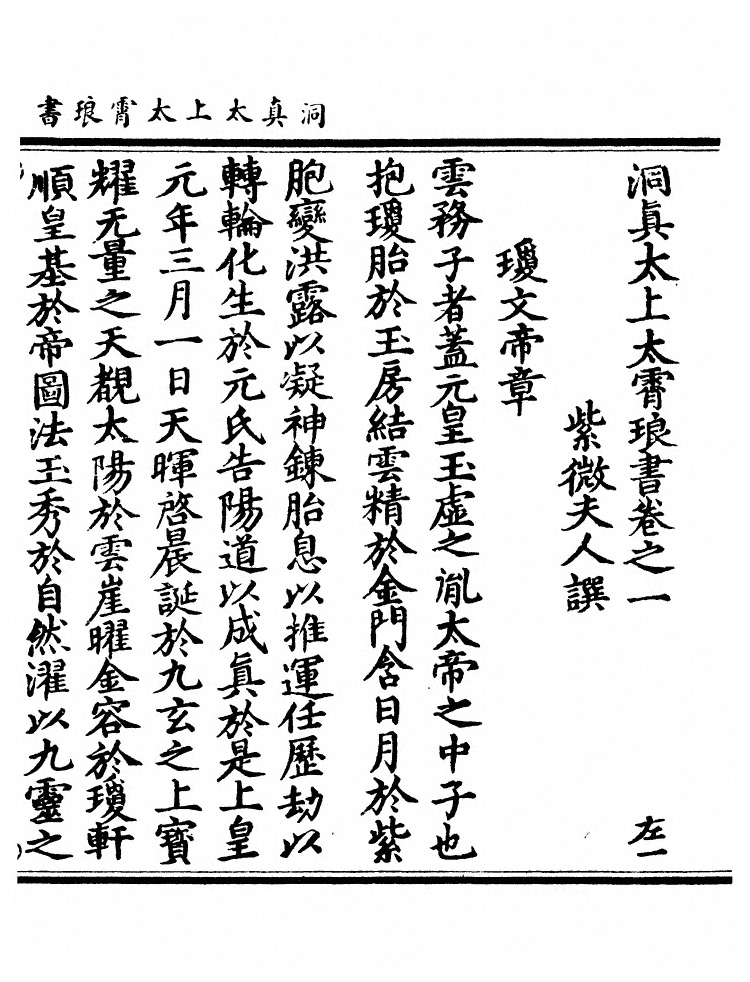 洞真太上太霄琅書
洞眞太上太霄琅書卷之一
左一
紫微夫人譔
瓊文帝章
雲務子者蓋元皇玉虛之胤太帝之中子也
抱瓊胎於玉房結雲精於金門含日月於紫
胞變洪露以凝神鍊胎息以推運任歷劫以
轉輪化生於元氏告陽道以成眞於是上皇
元年三月一日天暉啓晨誕於九玄之上寶
耀无量之天覩太陽於雲崖曜金容於瓊軒
順皇基於帝圖法玉秀於自然濯以九靈之